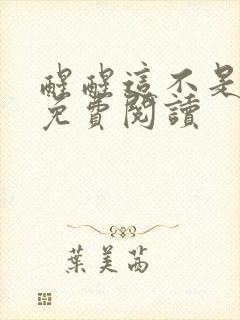 醒醒這不是
免費閱讀
葉美茜